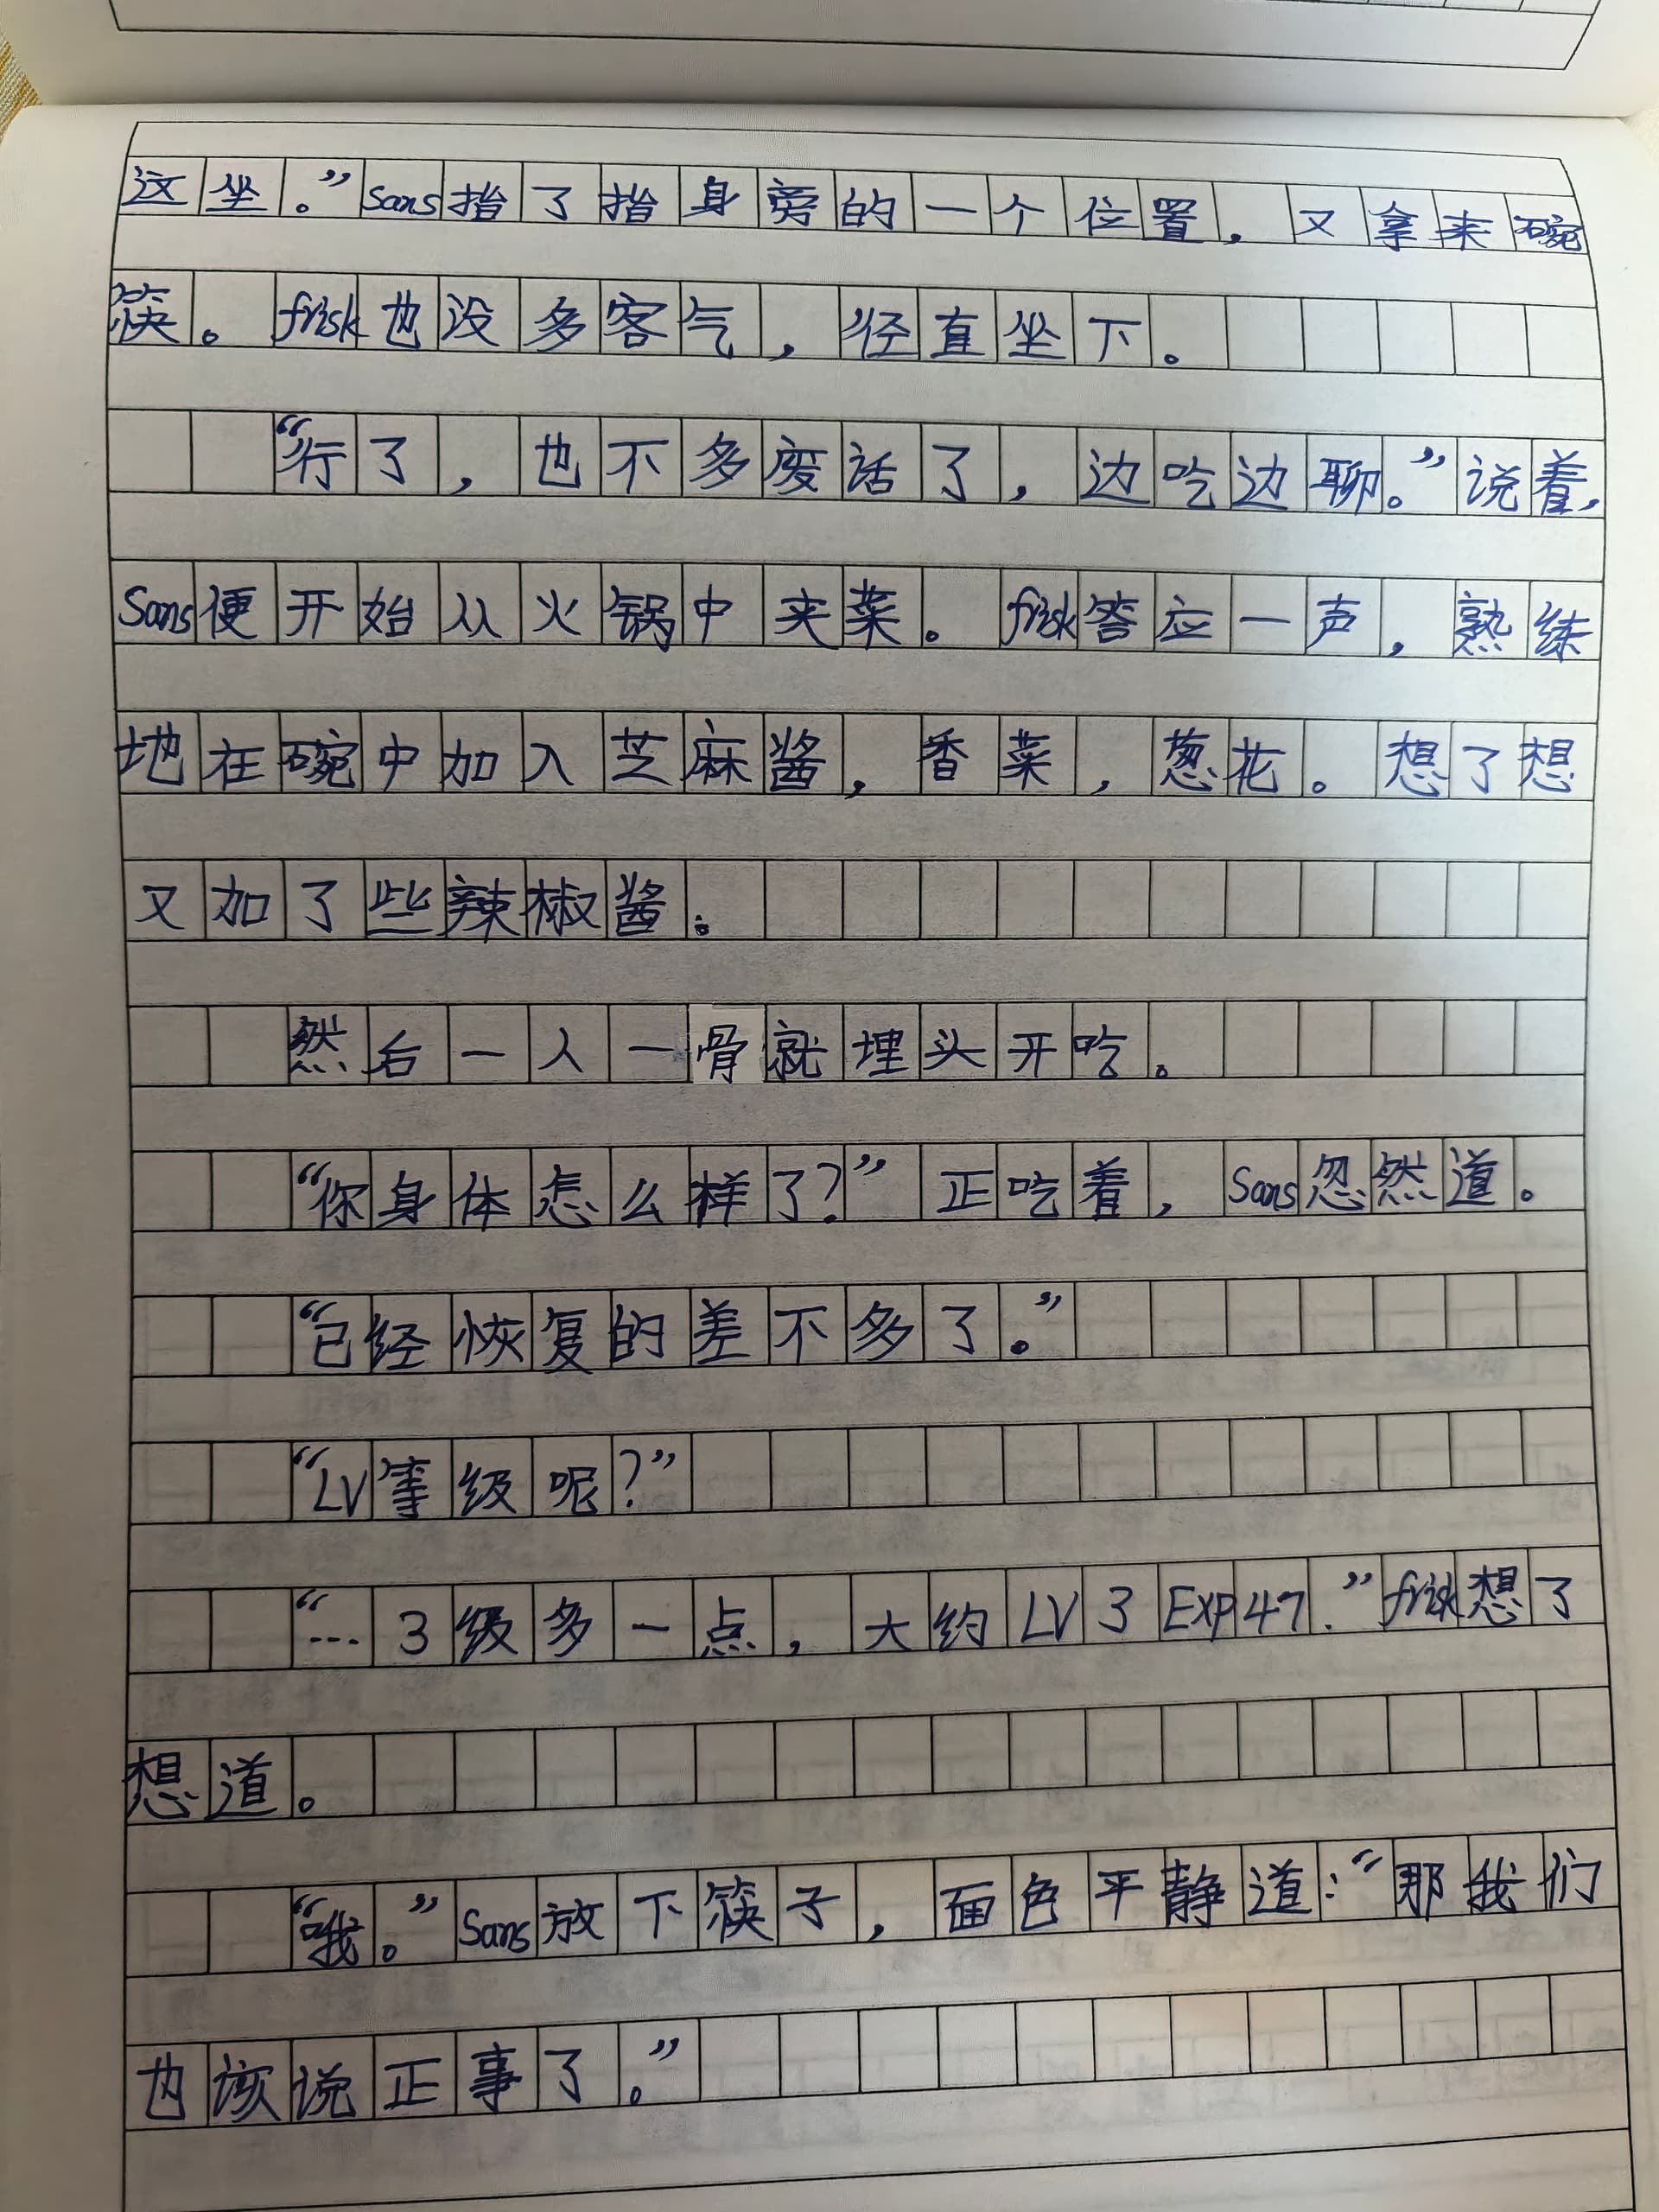 这坐。”Sans指了指身旁的一个位置，又拿来碗
筷。frisk也没多客气，径直坐下。
“行了，也不多废话了，边吃边聊。”说着，
Sans便开始从火锅中夹菜。frisk答应一声，熟练
地在碗中加入芝麻酱，香菜，葱花。想了想
又加了些辣椒酱。
然后一人一骨就埋头开吃。
“你身体怎么样了？”正吃着，Sans忽然道。
“已经恢复的差不多了。”
“LV等级呢？”
“…3级多一点，大约LV3 EXP47.”frisk想了
想道。
“哦。”Sans放下筷子，面色平静道：“那我们
也该说正事了。”